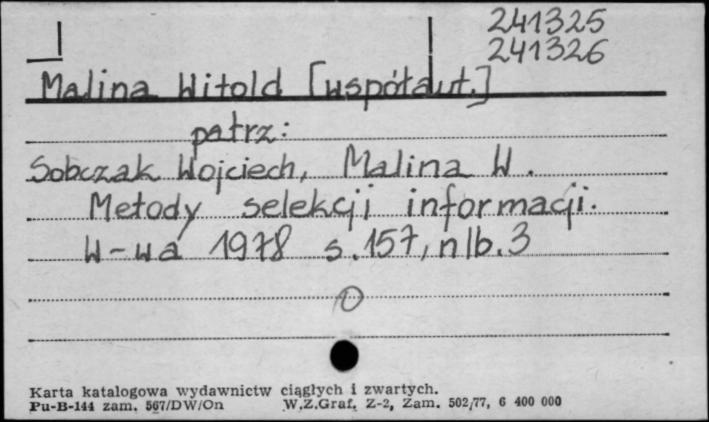 241325
241326
Malina Witold [współaut.]
patrz:
Sobczak Wojciech, Malina W.
Metody selekcji informacji.
W-wa 1978 s.157, nlb.3
Karta katalogowa wydawnictw ciągłych i zwartych.
Pu-B-144 zam. 567/DW/On W.Z.Graf. Z-2, Zam. 502/77, 6 400 000